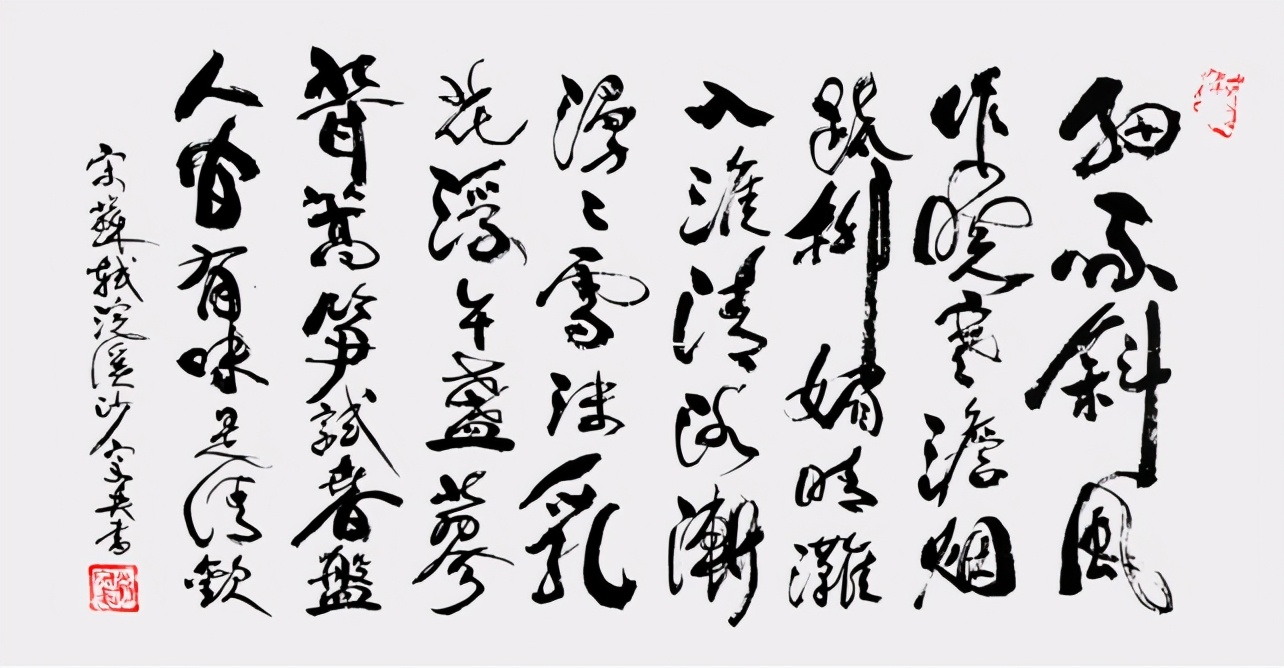 細雨斜風
作曉寒澹烟
疏柳媚晴灘
入淮清洛漸
漫々雪沫乳
花浮午盞蓼
茸蒿笋試春盤
人間有味是清歡
宋蘇軾浣溪沙書